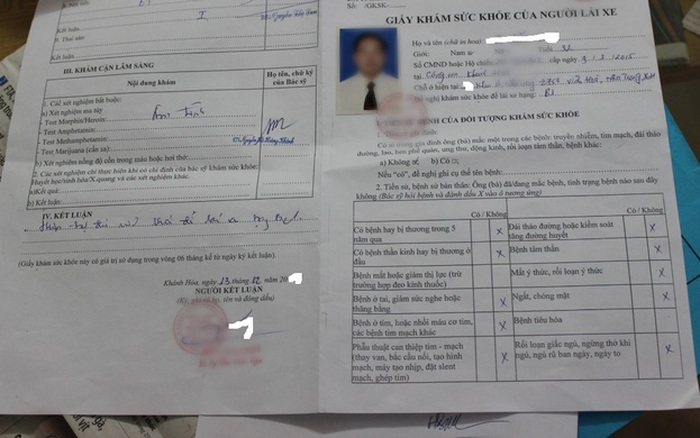 Kết luận
b. Thai sản
Kết luận
III. KHÁM CẬN LÂM SÀNG
Nội dung khám
Họ tên, chữ ký của Bác sỹ
1. Các xét nghiệm bắt buộc:
a) Xét nghiệm ma túy
- Test Morphin/Heroin:
- Test Amphetamin:
- Test Methamphetamin:
- Test Marijuana (cần sa):
Âm Tính
b) Xét nghiệm nồng độ cồn trong máu hoặc hơi thở:
2. Các xét nghiệm chỉ thực hiện khi có chỉ định của bác sỹ khám sức khỏe:
Huyết học/sinh hóa/X.quang và các xét nghiệm khác.
a) Kết quả:
b) Kết luận:
IV. KẾT LUẬN
(Giấy khám sức khỏe này có giá trị sử dụng trong vòng 06 tháng kể từ ngày ký kết luận).
Khánh Hòa, ngày 13 tháng 12 năm 20
NGƯỜI KẾT LUẬN
(Ký, ghi rõ họ, tên và đóng dấu)
Số: /GKSK-
GIẤY KHÁM SỨC KHỎE CỦA NGƯỜI LÁI XE
Họ và tên (chữ in hoa):
Giới: Nam Nữ Tuổi 32
Số CMND hoặc Hộ chiếu cấp ngày 9.3./2015
tại Công an Khánh
Chỗ ở hiện tại:
Đề nghị khám sức khỏe để lái xe hạng: B1
I. TIỀN SỬ BỆNH CỦA ĐỐI TƯỢNG KHÁM SỨC KHỎE
1. Tiền sử gia đình:
Có ai trong gia đình ông (bà) mắc một trong các bệnh: truyền nhiễm, tim mạch, đái tháo
đường, lao, hen phế quản, ung thư, động kinh, rối loạn tâm thần, bệnh khác:
a) Không b) Có □;
Nếu “có”, đề nghị ghi cụ thể tên bệnh:
2. Tiền sử, bệnh sử bản thân: Ông (bà) đã/đang mắc bệnh, tình trạng bệnh nào sau đây
không (Bác sỹ hỏi bệnh và đánh dấu X vào ô tương ứng)
Có / Không
Có / Không
Có bệnh hay bị thương trong 5 năm qua X
Đái tháo đường hoặc kiểm soát tăng đường huyết X
Có bệnh thần kinh hay bị thương ở đầu X
Bệnh tâm thần X
Bệnh mắt hoặc giảm thị lực (trừ trường hợp đeo kính thuốc) X
Mất ý thức, rối loạn ý thức X
Bệnh ở tai, giảm sức nghe hoặc thăng bằng X
Ngất, chóng mặt X
Bệnh ở tim, hoặc nhồi máu cơ tim, các bệnh tim mạch khác X
Bệnh tiêu hóa X
Phẫu thuật can thiệp tim - mạch (thay van, bắc cầu nối, tạo hình mạch, máy tạo nhịp, đặt slent mạch, ghép tim) X
Rối loạn giấc ngủ, ngừng thở khi ngủ, ngủ rũ ban ngày, ngáy to X